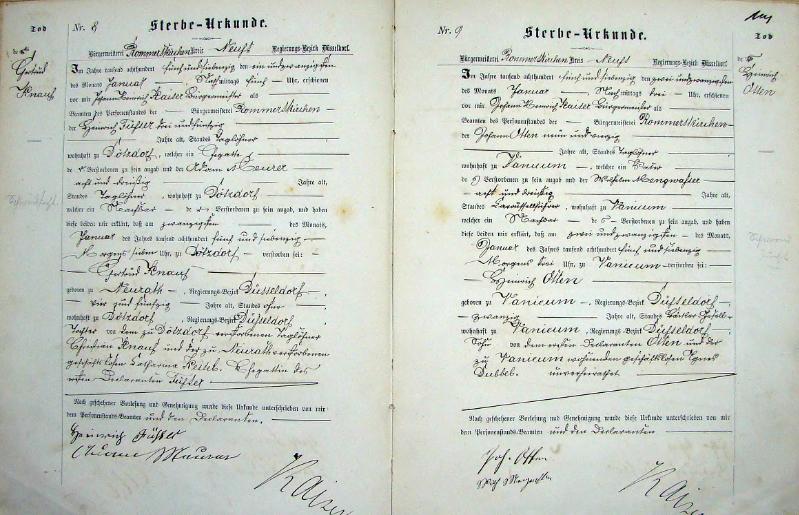 Tod
Nr. 8
Sterbe-Urkunde.
Bürgermeisterei Rommerskirchen Kreis Neuß Regierungs-Bezirk Düsseldorf.
de r
Gertrud
Knauf
Im Jahre tausend achthundert fünf und siebenzig den ein und zwanzigsten
des Monats Januar Nachmittags fünf Uhr, erschienen
vor mir Johann Heinrich Kaiser Bürgermeister als
Beamten des Personenstandes der Bürgermeisterei Rommerskirchen
der Heinrich
Jahre alt, Standes Taglöhner
wohnhaft zu Dötzdorf, welcher ein Gegatte
de r Verstorbenen zu sein angab und der Adam Meurer
acht und dreißig Jahre alt,
Standes Taglöhner, wohnhaft zu Dötzdorf
welcher ein Nachbar de r Verstorbenen zu sein angab, und haben
diese beiden mir erklärt, daß am zwanzigsten des Monats,
Januar des Jahres tausend achthundert fünf und siebenzig
Morgens sieben Uhr, zu Dötzdorf verstorben sei:
Gertrud Knauf
geboren zu Neurath, Regierungs-Bezirk Düsseldorf,
vier und fünfzig Jahre alt, Standes ohne
wohnhaft zu Dötzdorf, Regierungs-Bezirk Düsseldorf,
Tochter von dem zu Dötzdorf verstorbenen Taglöhner
Christian Knauf und der zu Neurath verstorbenen
geschäftslosen Catharina Ehegattin des
ersten Declaranten
Nach geschehener Vorlesung und Genehmigung wurde diese Urkunde unterschrieben von mir
dem Personenstands-Beamten und den Declaranten.
Heinrich
Adam Maurer
Kaiser
Nr. 9
Sterbe-Urkunde.
Bürgermeisterei Rommerskirchen Kreis Neuß Regierungs-Bezirk Düsseldorf.
Tod
de s
Heinrich
Otten
Im Jahre tausend achthundert fünf und siebenzig den zwei und zwanzigsten
des Monats Januar Nachmittags drei Uhr, erschienen
vor mir Johann Heinrich Kaiser Bürgermeister als
Beamten des Personenstandes der Bürgermeisterei Rommerskirchen
der Johann Otten
Jahre alt, Standes Taglöhner
wohnhaft zu Vanicum, welcher ein Vater
de s Verstorbenen zu sein angab und der Wilhelm Mengwasser
acht und dreißig Jahre alt,
Standes, wohnhaft zu Vanicum
welcher ein Nachbar de s Verstorbenen zu sein angab, und haben
diese beiden mir erklärt, daß am zwei und zwanzigsten des Monats,
Januar des Jahres tausend achthundert fünf und siebenzig
Morgens drei Uhr, zu Vanicum verstorben sei:
Heinrich Otten
geboren zu Vanicum, Regierungs-Bezirk Düsseldorf,
zwanzig Jahre alt, Standes
wohnhaft zu Vanicum, Regierungs-Bezirk Düsseldorf,
Sohn von dem ersten Declaranten Otten und der
zu Vanicum wohnenden geschäftslosen Agnes
unverheirathet
Nach geschehener Vorlesung und Genehmigung wurde diese Urkunde unterschrieben von mir
dem Personenstands-Beamten und den Declaranten
Joh. Otten
Kaiser